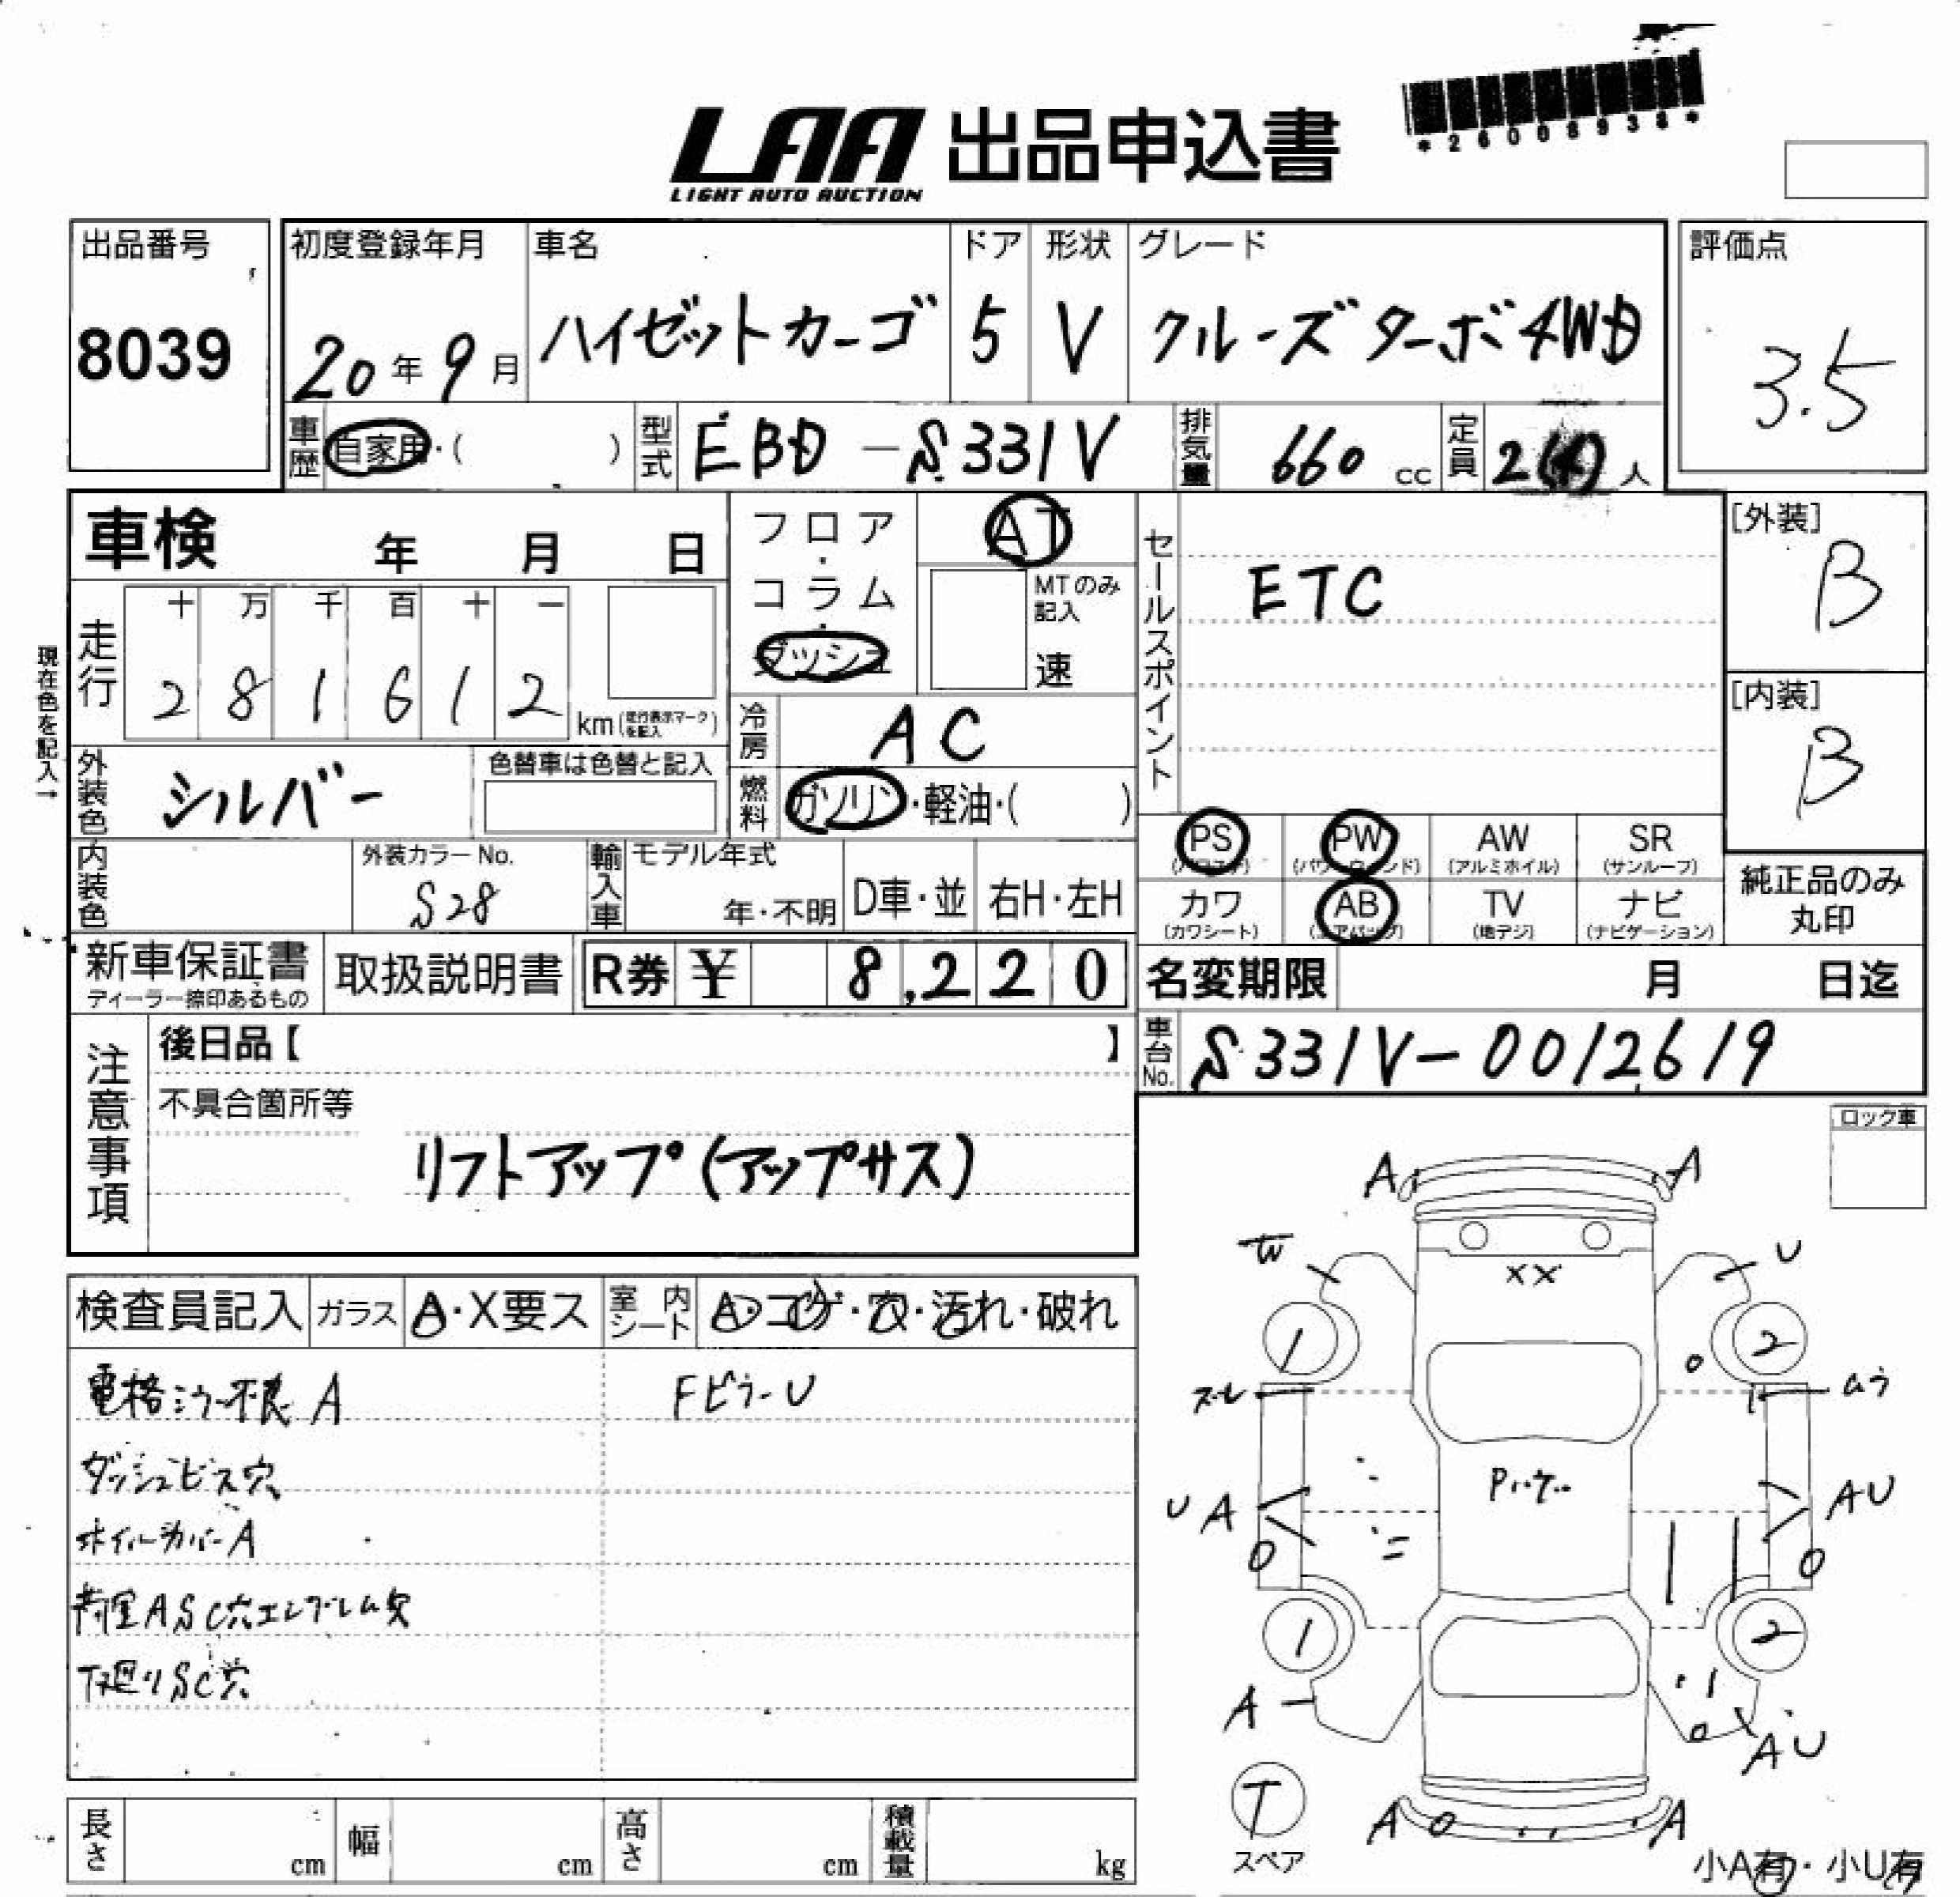 *26008938*
LAA 出品申込書
LIGHT AUTO AUCTION
出品番号
8039
初度登録年月
20年9月
車名
ハイゼットカーゴ
ドア
5
形状
V
グレード
クルーズターボ4WD
評価点
3.5
車歴 自家用・( )
型式 EBD-S331V
排気量 660 cc
定員 2(4)人
車検 年 月 日
フロア・コラム・ダッシュ
AT
MTのみ記入
速
セールスポイント
ETC
[外装]
B
[内装]
B
現在色を記入→
走行
十 万 千 百 十 一
2 8 1 6 1 2 km (走行表示マークを記入)
冷房 AC
外装色 シルバー
色替車は色替と記入
燃料 ガソリン・軽油・( )
PS PW AW SR
(パワステ) (パワーウィンド) (アルミホイル) (サンルーフ)
カワ AB TV ナビ
(カワシート) (エアバッグ) (地デジ) (ナビゲーション)
純正品のみ
丸印
内装色
外装カラーNo.
S28
輸入車
モデル年式
年・不明
D車・並
右H・左H
新車保証書
ディーラー捺印あるもの
取扱説明書
R券 ¥ 8,220
名変期限 月 日迄
車台No. S331V-0012619
注意事項
後日品【 】
不具合箇所等
リフトアップ(アップサス)
ロック車
検査員記入
ガラス A・X要ス
室内シート A・コゲ・穴・汚れ・破れ
電格ミラー不良 A
FピラーU
ダッシュビス穴
ホイルカバーA
荷室ASC穴エンブレム欠
下廻りSC穴
A A
W U
XX
1 2
スレ ムラ
UA AU
1 2
A AU
T
スペア
A A
小A有・小U有
長さ cm
幅 cm
高さ cm
積載量 kg